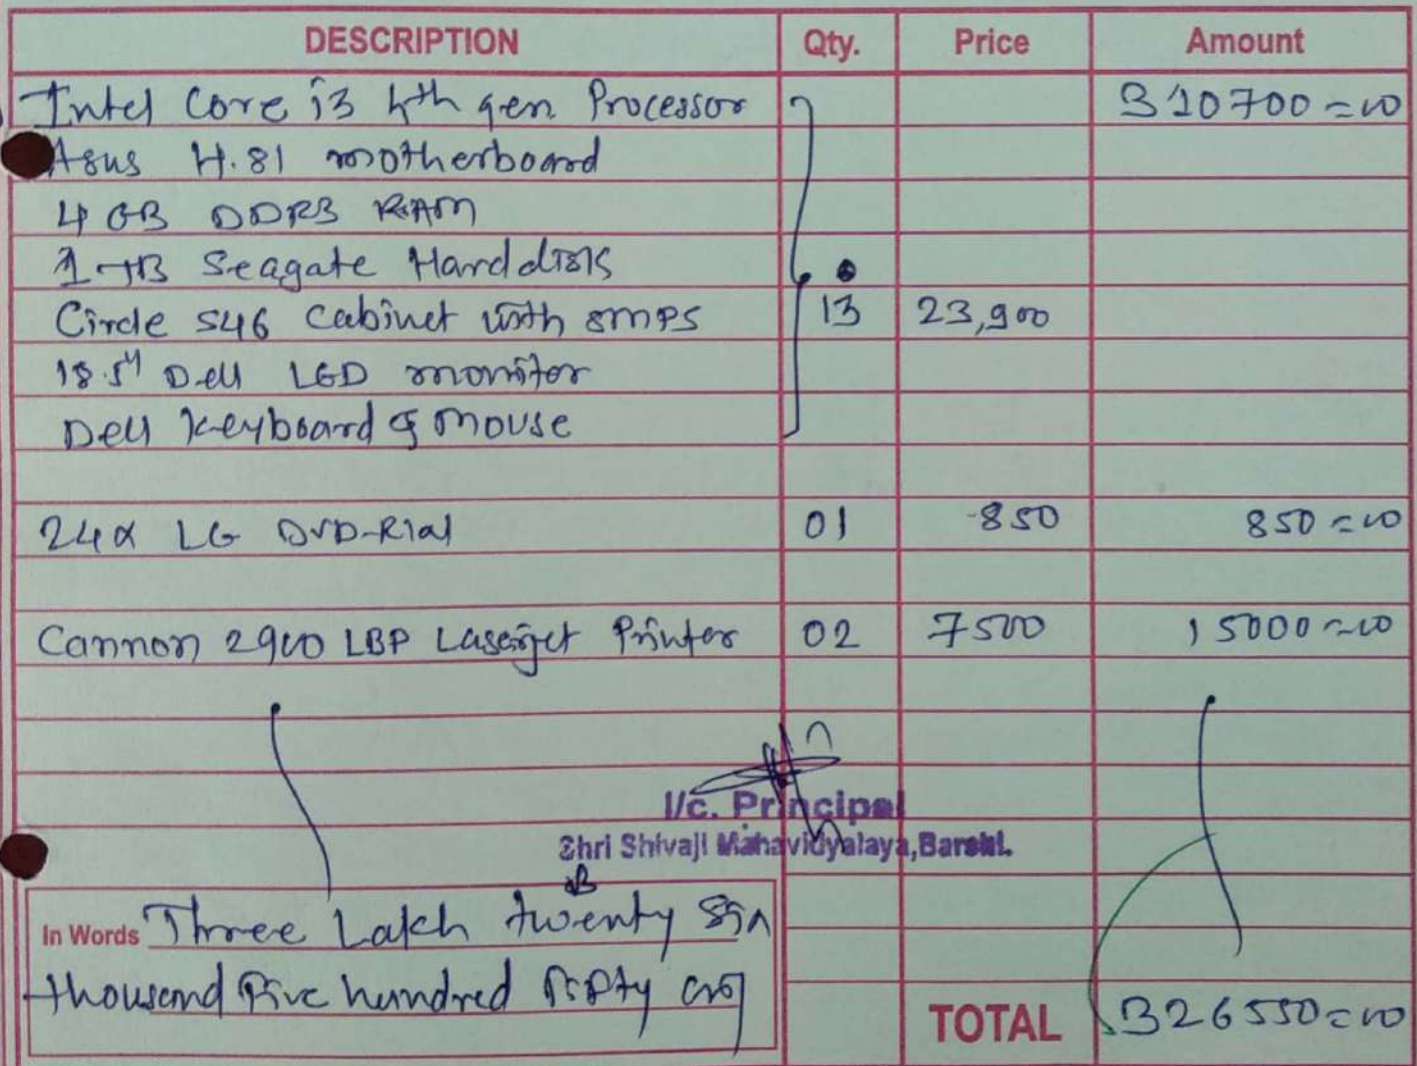 DESCRIPTION Qty. Price Amount
Intel Core i3 4th gen Processor 310700=00
Asus H.81 motherboard
4 GB DDR3 RAM
1 TB Seagate Harddisk
Circle 546 Cabinet with SMPS 13 23,900
18.5" Dell LED monitor
Dell Keyboard & mouse
24x LG DVD-R 01 850 850=00
Cannon 2900 LBP Laserjet Printer 02 7500 15000=00
I/c. Principal
Shri Shivaji Mahavidyalaya, Barshi.
In Words Three Lakh twenty Six
thousand Five hundred Fifty only
TOTAL 326550=00